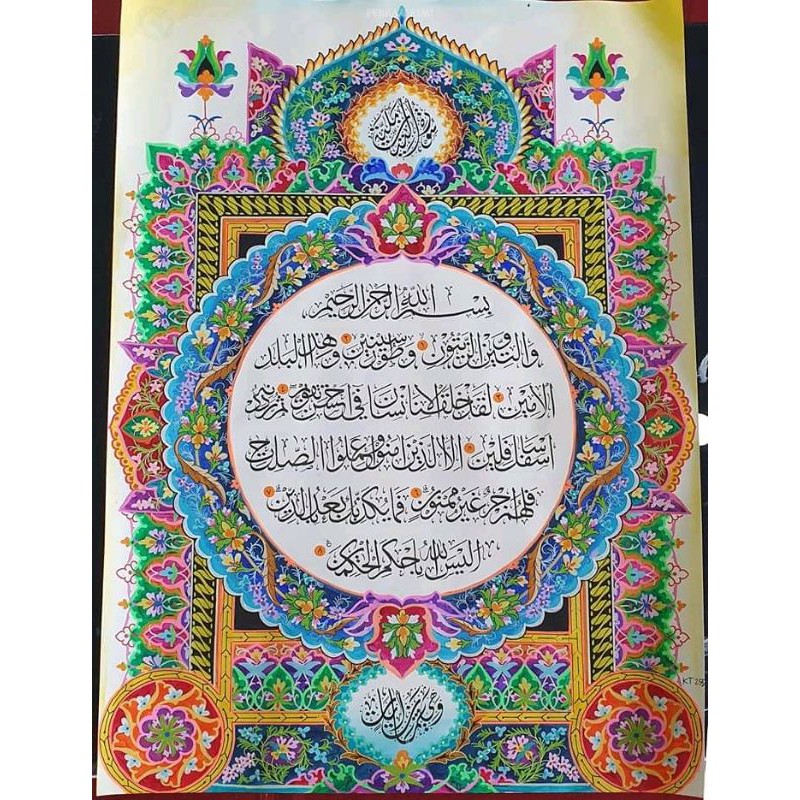 سورة التين
بسم الله الرحمن الرحيم
والتين والزيتون ١ وطور سينين ٢ وهذا البلد
الامين ٣ لقد خلقنا الانسان في احسن تقويم ٤ ثم رددنه
اسفل سافلين ٥ الا الذين امنوا وعملوا الصلحت
فلهم اجر غير ممنون ٦ فما يكذبك بعد بالدين ٧
اليس الله باحكم الحكمين ٨
وهي ايات
KT